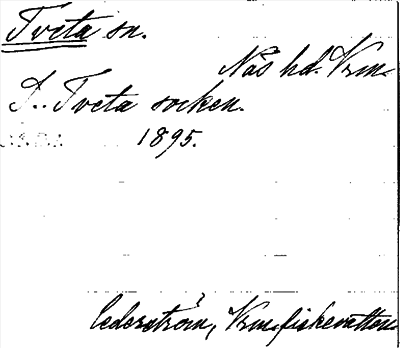 Tveta sn.
Näs hd. Vrm.
T.. Tveta socken.
1895.
Cederström, Vrm. fiskevatten